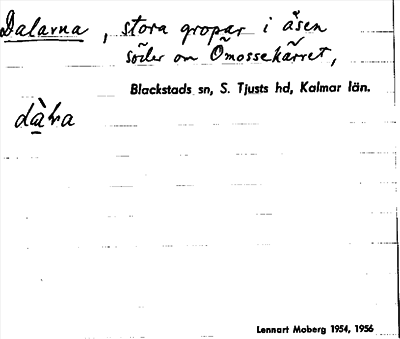 Dalarna, stora gropar i åsen
söder om Ömossekärret,
Blackstads sn, S. Tjusts hd, Kalmar län.
dàra
Lennart Moberg 1954, 1956